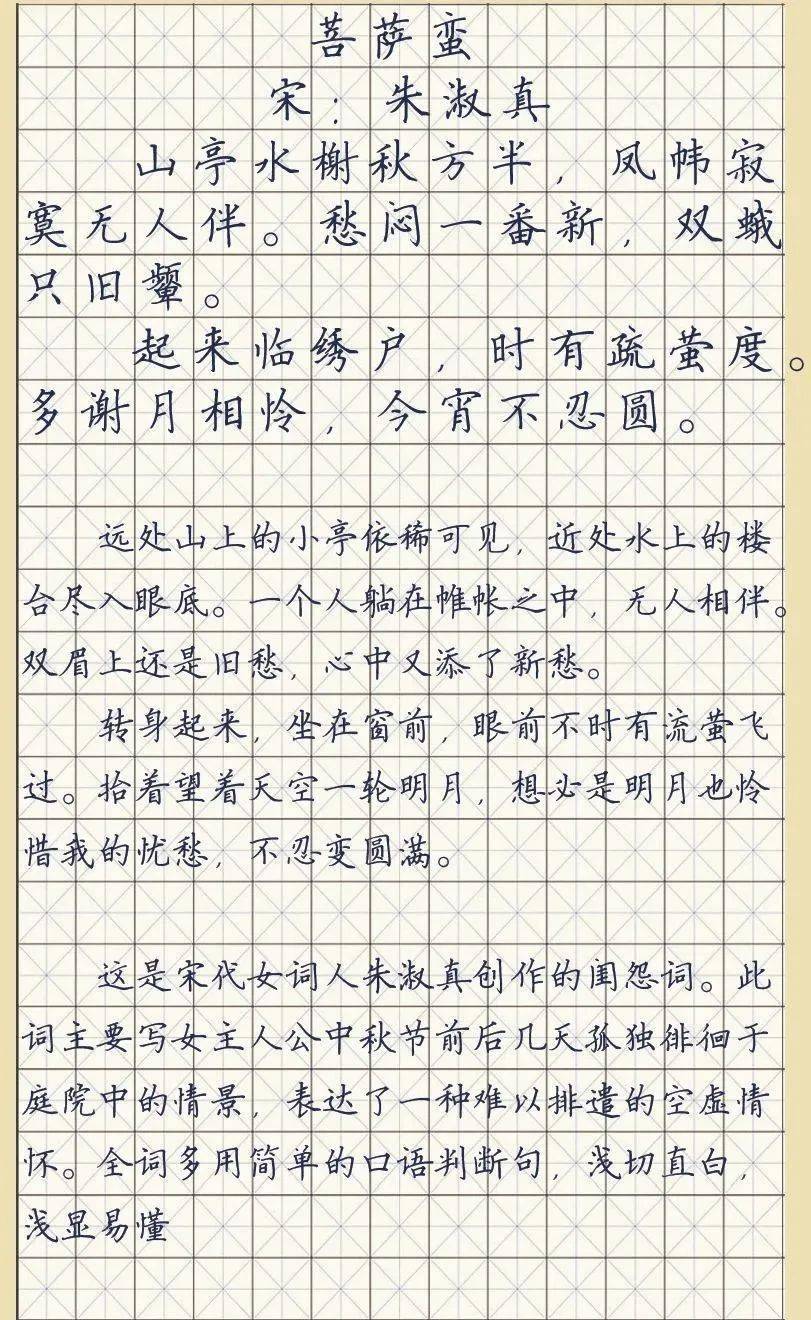 菩萨蛮
宋：朱淑真
山亭水榭秋方半，凤帏寂
寞无人伴。愁闷一番新，双蛾
只旧颦。
起来临绣户，时有疏萤度。
多谢月相怜，今宵不忍圆。
远处山上的小亭依稀可见，近处水上的楼
台尽入眼底。一个人躺在帷帐之中，无人相伴。
双眉上还是旧愁，心中又添了新愁。
转身起来，坐在窗前，眼前不时有流萤飞
过。抬着望着天空一轮明月，想必是明月也怜
惜我的忧愁，不忍变圆满。
这是宋代女词人朱淑真创作的闺怨词。此
词主要写女主人公中秋节前后几天孤独徘徊于
庭院中的情景，表达了一种难以排遣的空虚情
怀。全词多用简单的口语判断句，浅切直白，
浅显易懂